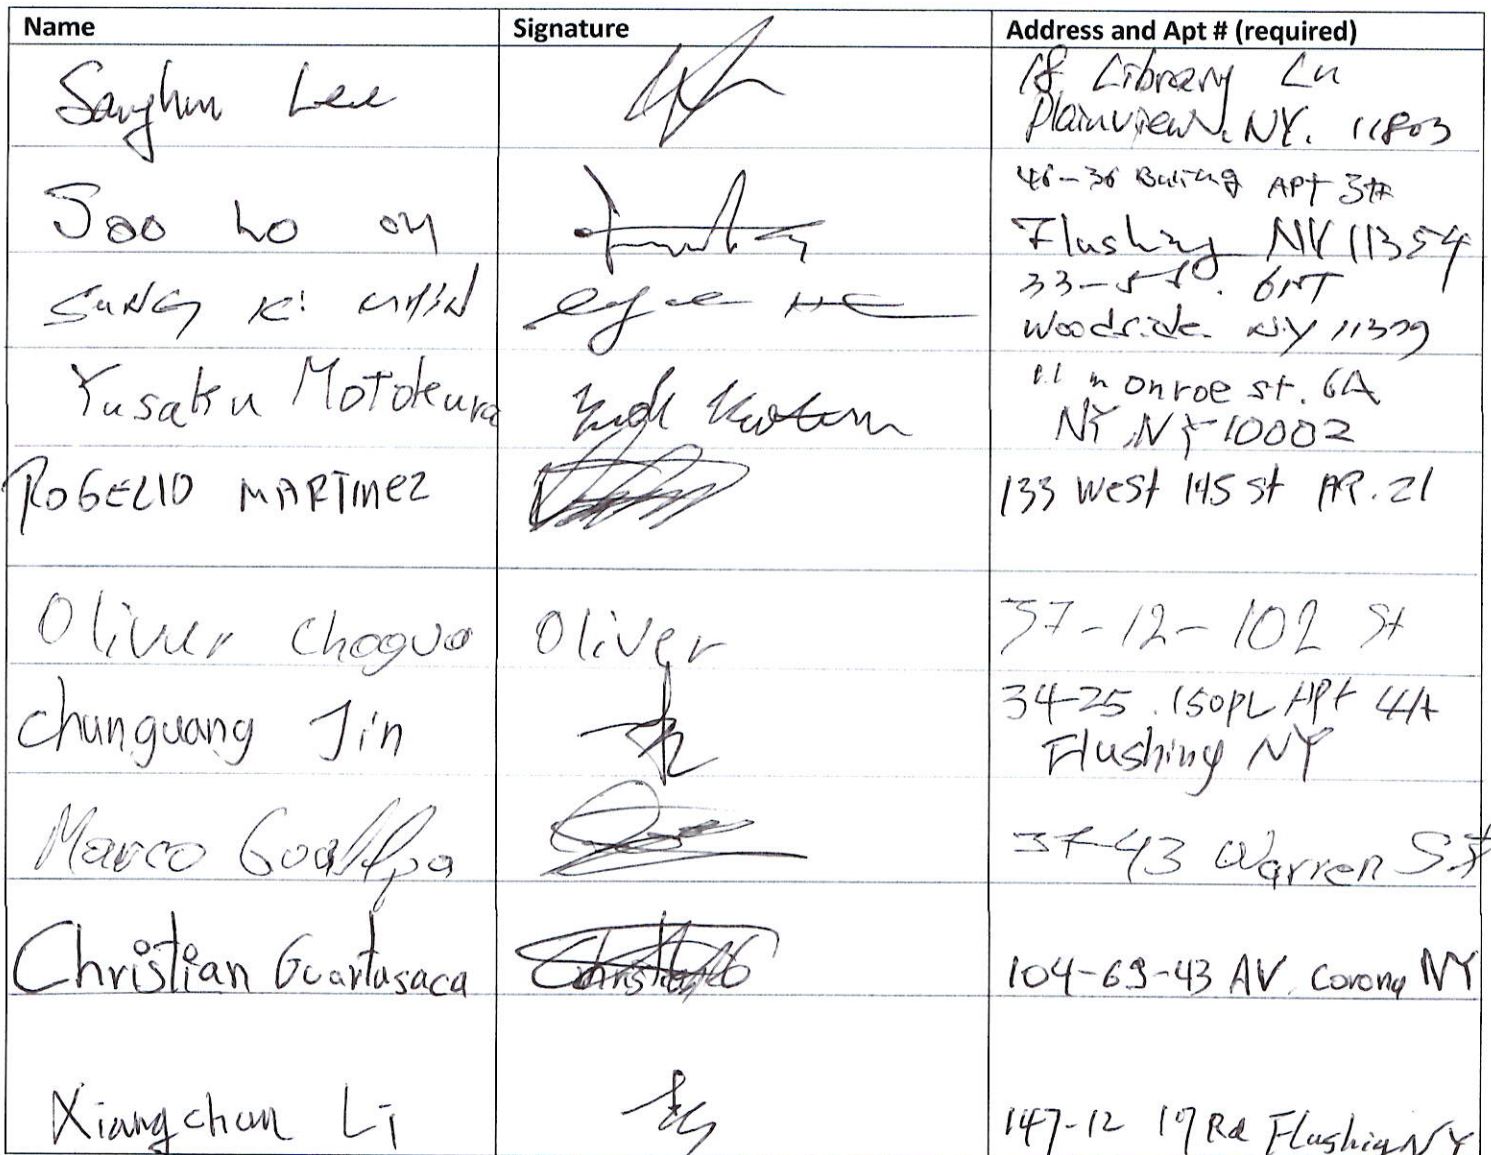 Name Signature Address and Apt # (required)
Sanghun Lee 18 Library Ln
Plainview, NY. 11803
APT 3#
Soo Ho Flushing NY 11354
33-
SUNG Ki Woodside NY
Yusaku Motokura monroe st. 6A
NY, NY 10002
ROGELIO MARTINEZ 133 West 145 St AP. 21
Oliver Choguo Oliver 37-12-102 St
Chunguang Jin 34-25 150PL APt
Flushing NY
Marco Guallpa 37-43 Warren St
Christian Guartasaca Christian G 104-69-43 AV. Corona NY
Xiangchun Li 147-12 19 Rd Flushing NY